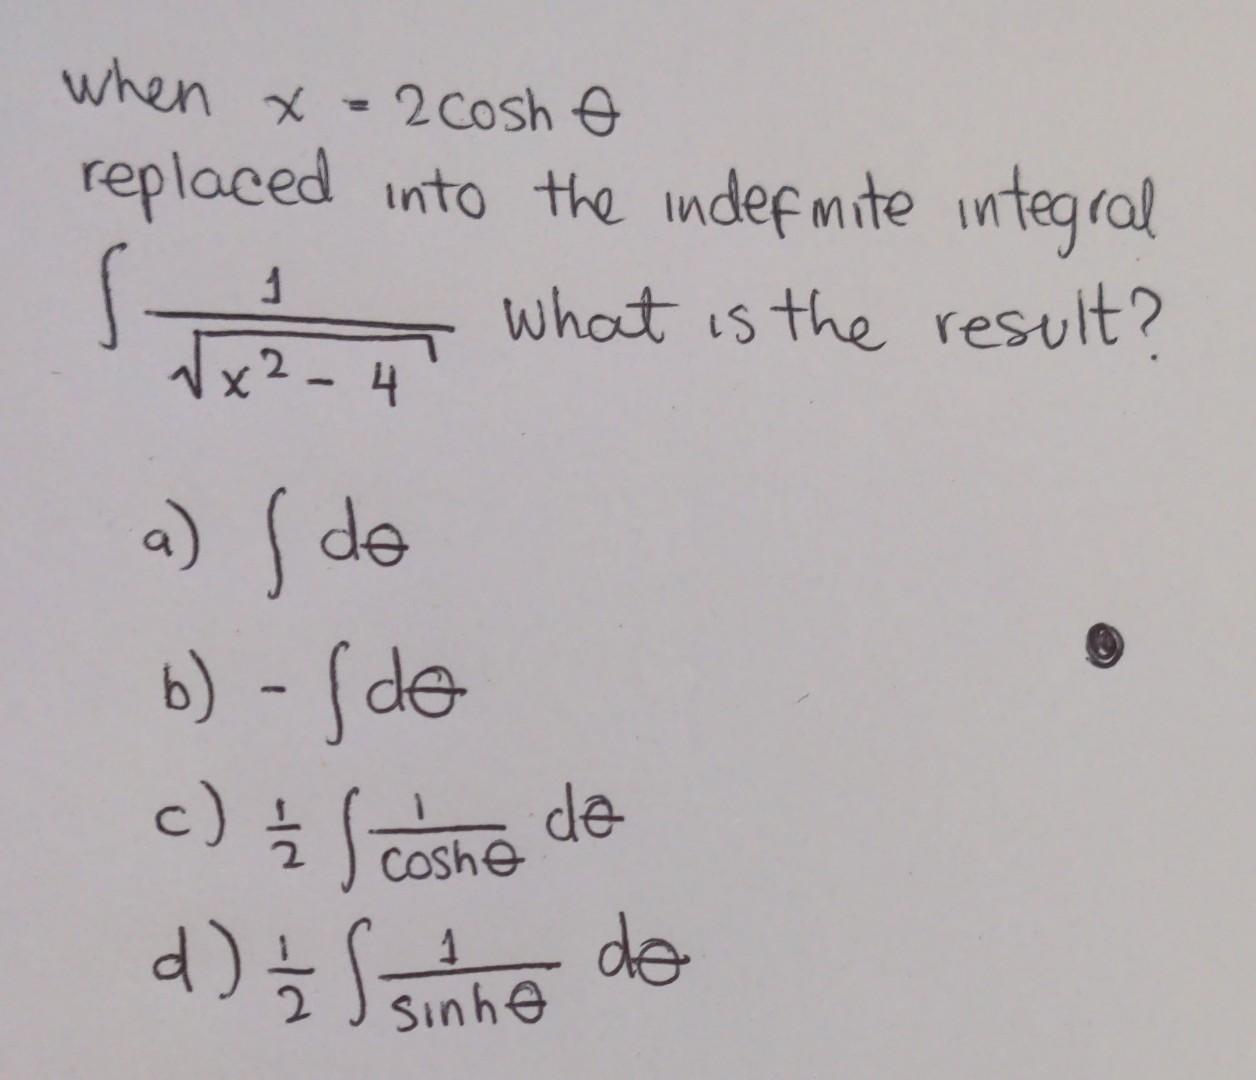 when x = 2cosh θ
replaced into the indefinite integral
∫ 1/√(x² - 4) what is the result?
a) ∫ dθ
b) - ∫ dθ
c) 1/2 ∫ 1/coshθ dθ
d) 1/2 ∫ 1/sinhθ dθ